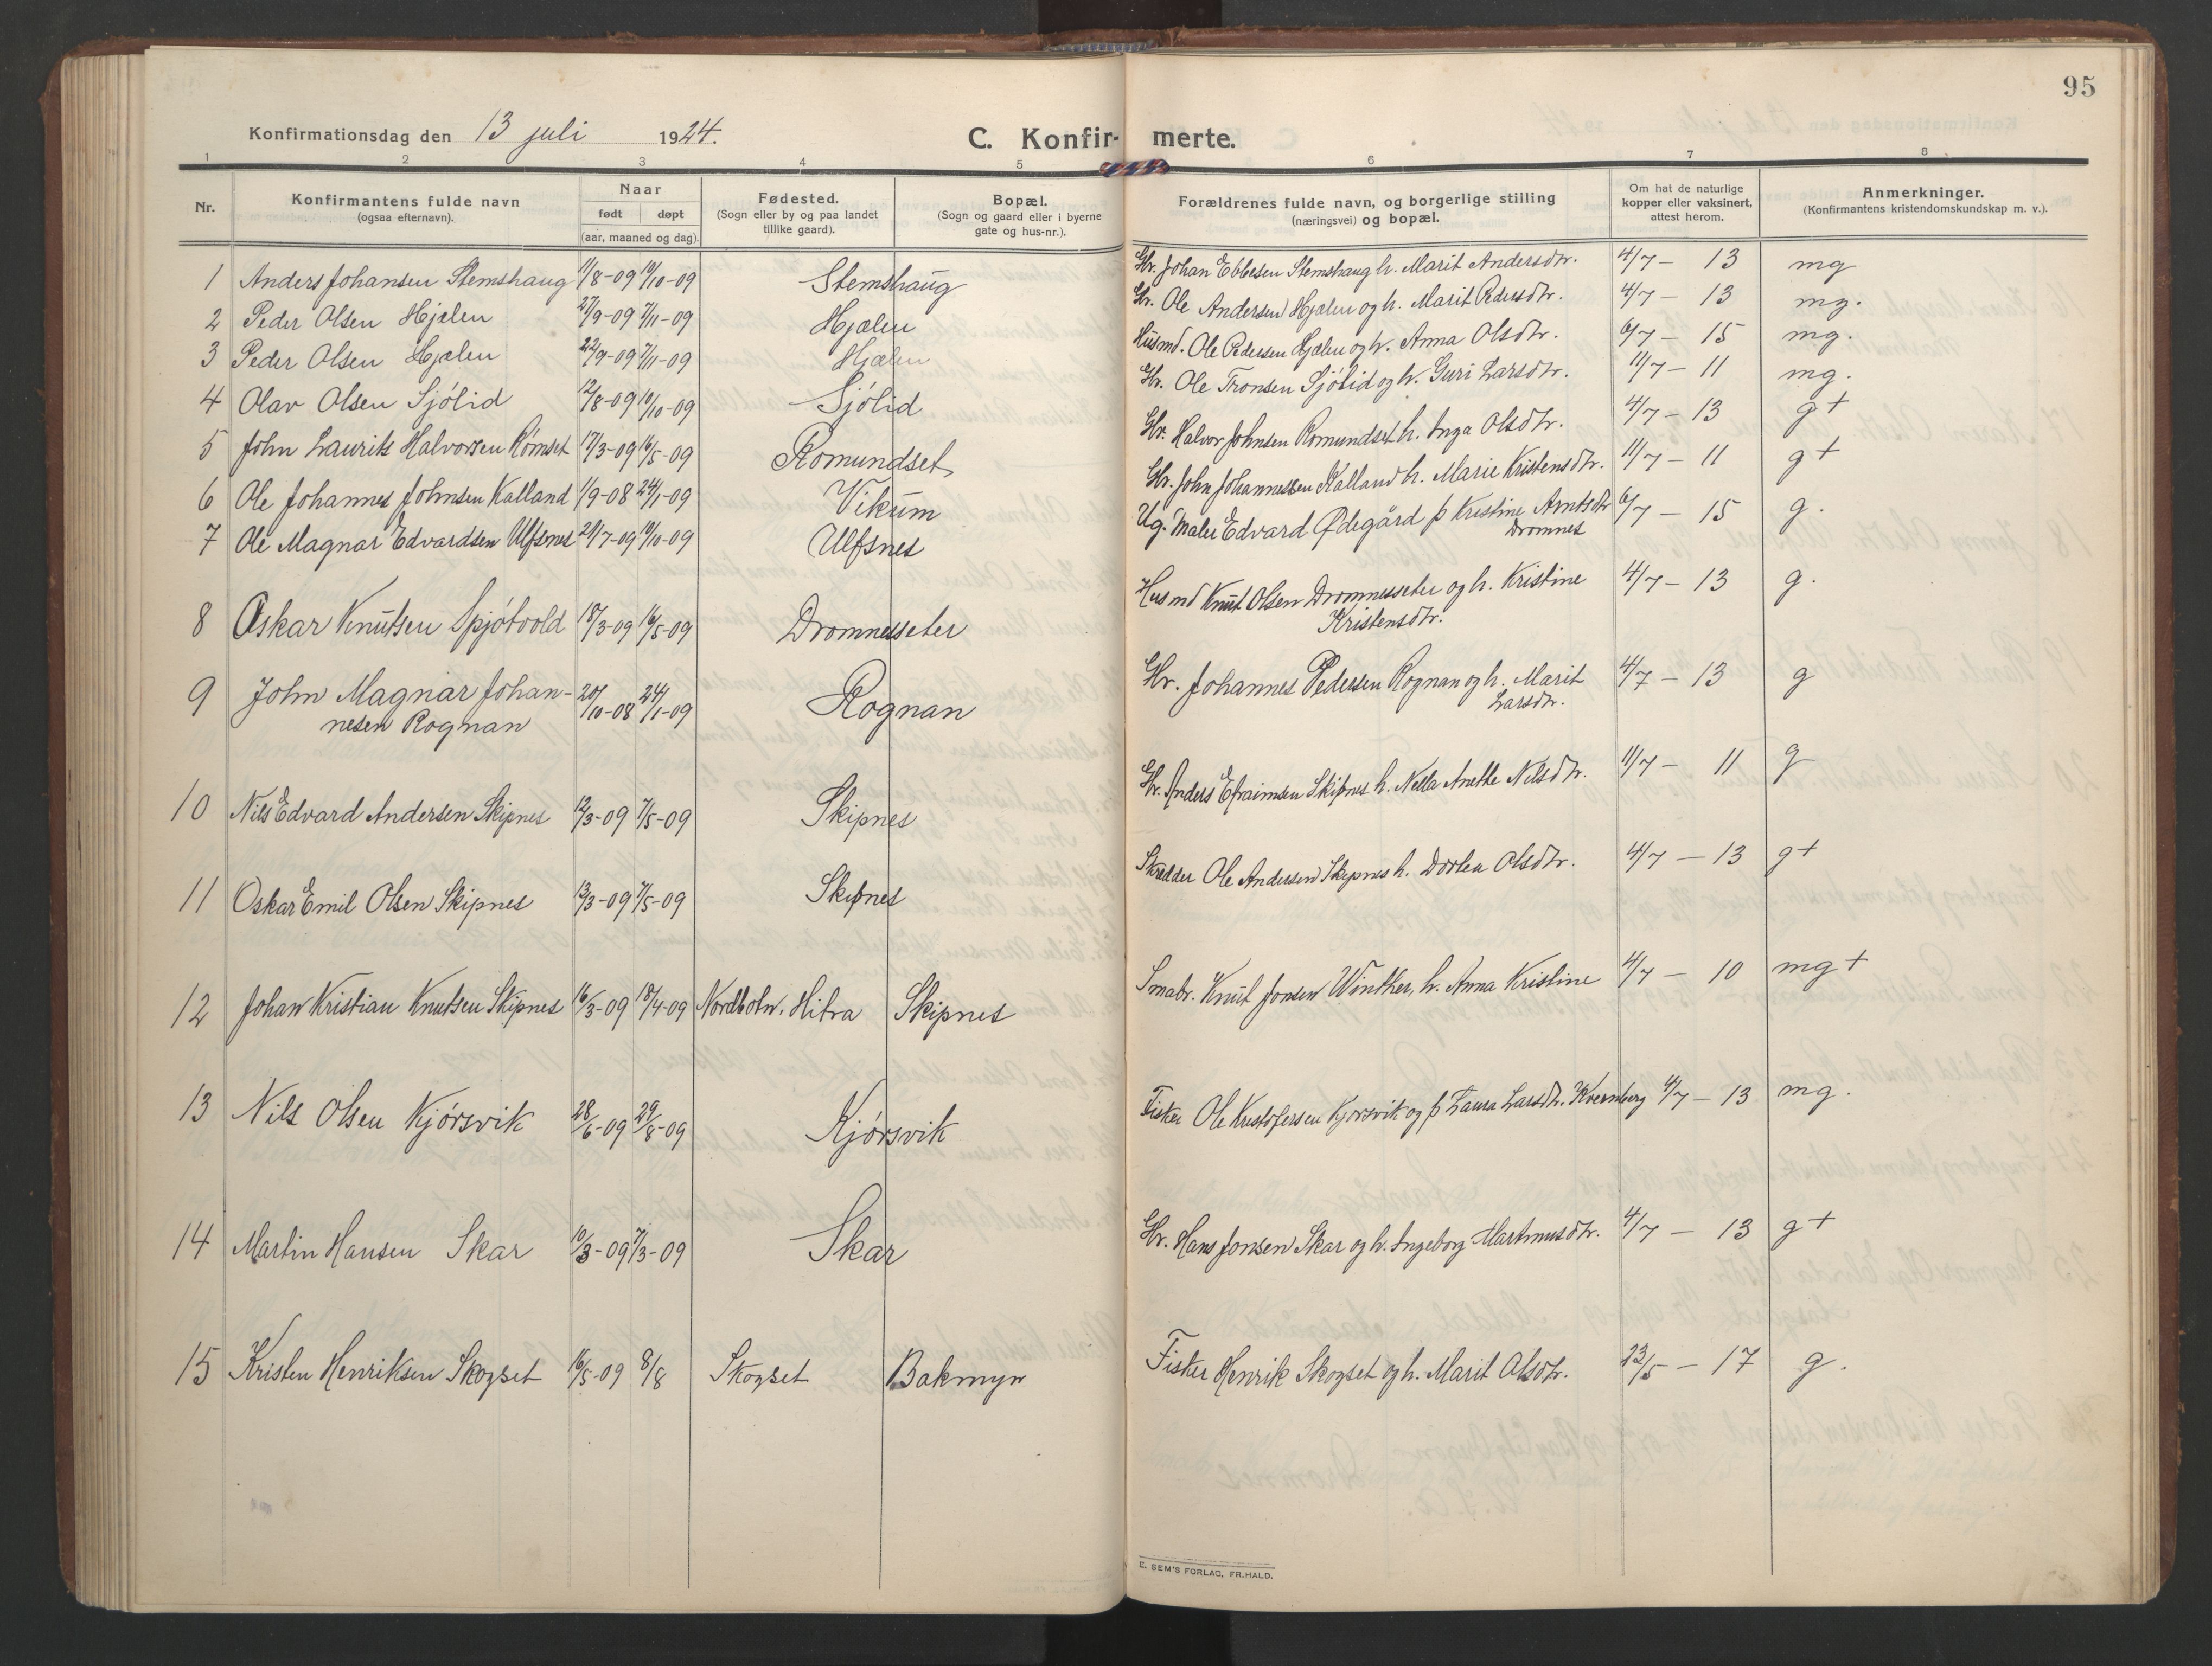 95
Konfirmationsdag den 13 juli 1924.
C. Konfir- merte.
1 2 3 4 5 6 7 8
Nr. Konfirmantens fulde navn (ogsaa efternavn). Naar født døpt (aar, maaned og dag). Fødested. (Sogn eller by og paa landet tillike gaard). Bopæl. (Sogn og gaard eller i byerne gate og hus-nr.). Forældrenes fulde navn, og borgerlige stilling (næringsvei) og bopæl. Om hat de naturlige kopper eller vaksinert, attest herom. Anmerkninger. (Konfirmantens kristendomskundskap m. v.).
1 Anders Johansen Stemshaug 11/8-09 10/10-09 Stemshaug Gbr. Johan Ebbesen Stemshaug h. Marit Andersdtr. 4/7 - 13 mg
2 Peder Olsen Hjælen 27/9-09 7/11-09 Hjælen Gbr. Ole Andersen Hjælen og h. Marit Pedersdtr. 4/7 - 13 mg.
3 Peder Olsen Hjælen 22/9-09 7/11-09 Hjælen Husmd. Ole Pedersen Hjælen og h. Anna Olsdtr. 6/7 - 15 mg.
4 Olav Olsen Sjölid 12/8-09 10/10-09 Sjölid Gbr. Ole Tronsen Sjölid og h. Guri Larsdtr. 11/7 - 11 mg.
5 John Laurits Halvorsen Romset 17/3-09 16/5-09 Romundset Gbr. Halvor Johnsen Romundset h. Inga Olsdtr. 4/7 - 13 g+
6 Ole Johannes Johnsen Kalland 1/9-08 24/1-09 Vikum Gbr. John Johannessen Kalland h. Marie Kristensdtr. 11/7 - 11 g+
7 Ole Magnar Edvardsen Ulfsnes 21/7-09 10/10-09 Ulfsnes Ug. Maler Edvard Ødegård p Kristine Arntsdtr 6/7 - 15 g.
Dromnes
8 Oskar Knutsen Spjötvold 18/3-09 16/5-09 Dromnesseter Husmd Knut Olsen Dromnesseter og h. Kristine 4/7 - 13 g.
Kristensdtr.
9 John Magnar Johan- 20/10-08 24/1-09 Rognan Gbr. Johannes Pedersen Rognan og h. Marit 4/7 - 13 g
nesen Rognan Larsdtr.
10 Nils Edvard Andersen Skipnes 12/3-09 7/5-09 Skipnes Gbr. Anders Efraimsen Skipnes h. Nella Anette Nilsdtr. 11/7 - 11 g
11 Oskar Emil Olsen Skipnes 13/3-09 7/5-09 Skipnes Skrædder Ole Andersen Skipnes h. Dortea Olsdtr. 4/7 - 13 g+
12 Johan Kristian Knutsen Skipnes 16/3-09 18/4-09 Nordbotn. Hitra Skipnes Smabr. Knut Jonsen Winther, h. Anna Kristine 4/7 - 10 mg+
13 Nils Olsen Kjörsvik 28/6-09 29/8-09 Kjörsvik Fisker Ole Kristofersen Kjörsvik og p Laura Larsdtr. Kvernberg 4/7 - 13 mg.
14 Martin Hansen Skar 10/3-09 7/3-09 Skar Gbr. Hans Jonsen Skar og h. Ingeborg Martinusdtr. 4/7 - 13 g+
15 Kristen Henriksen Skogset 16/5-09 8/8 Skogset Bakmyr Fisker Henrik Skogset og h. Marit Olsdtr. 23/5 - 17 g.
E. SEM'S FORLAG, FR.HALD.